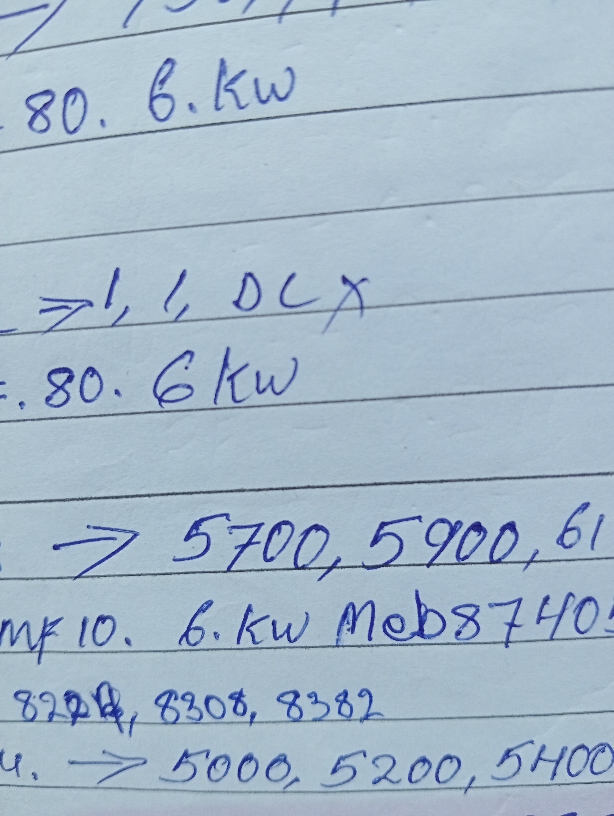 80. 6.KW
⇒ 1, 1, DCX
=. 80. 6KW
→ 5700, 5900, 61
MF 10. 6.KW Meb8740
8308, 8382
4. → 5000, 5200, 5400